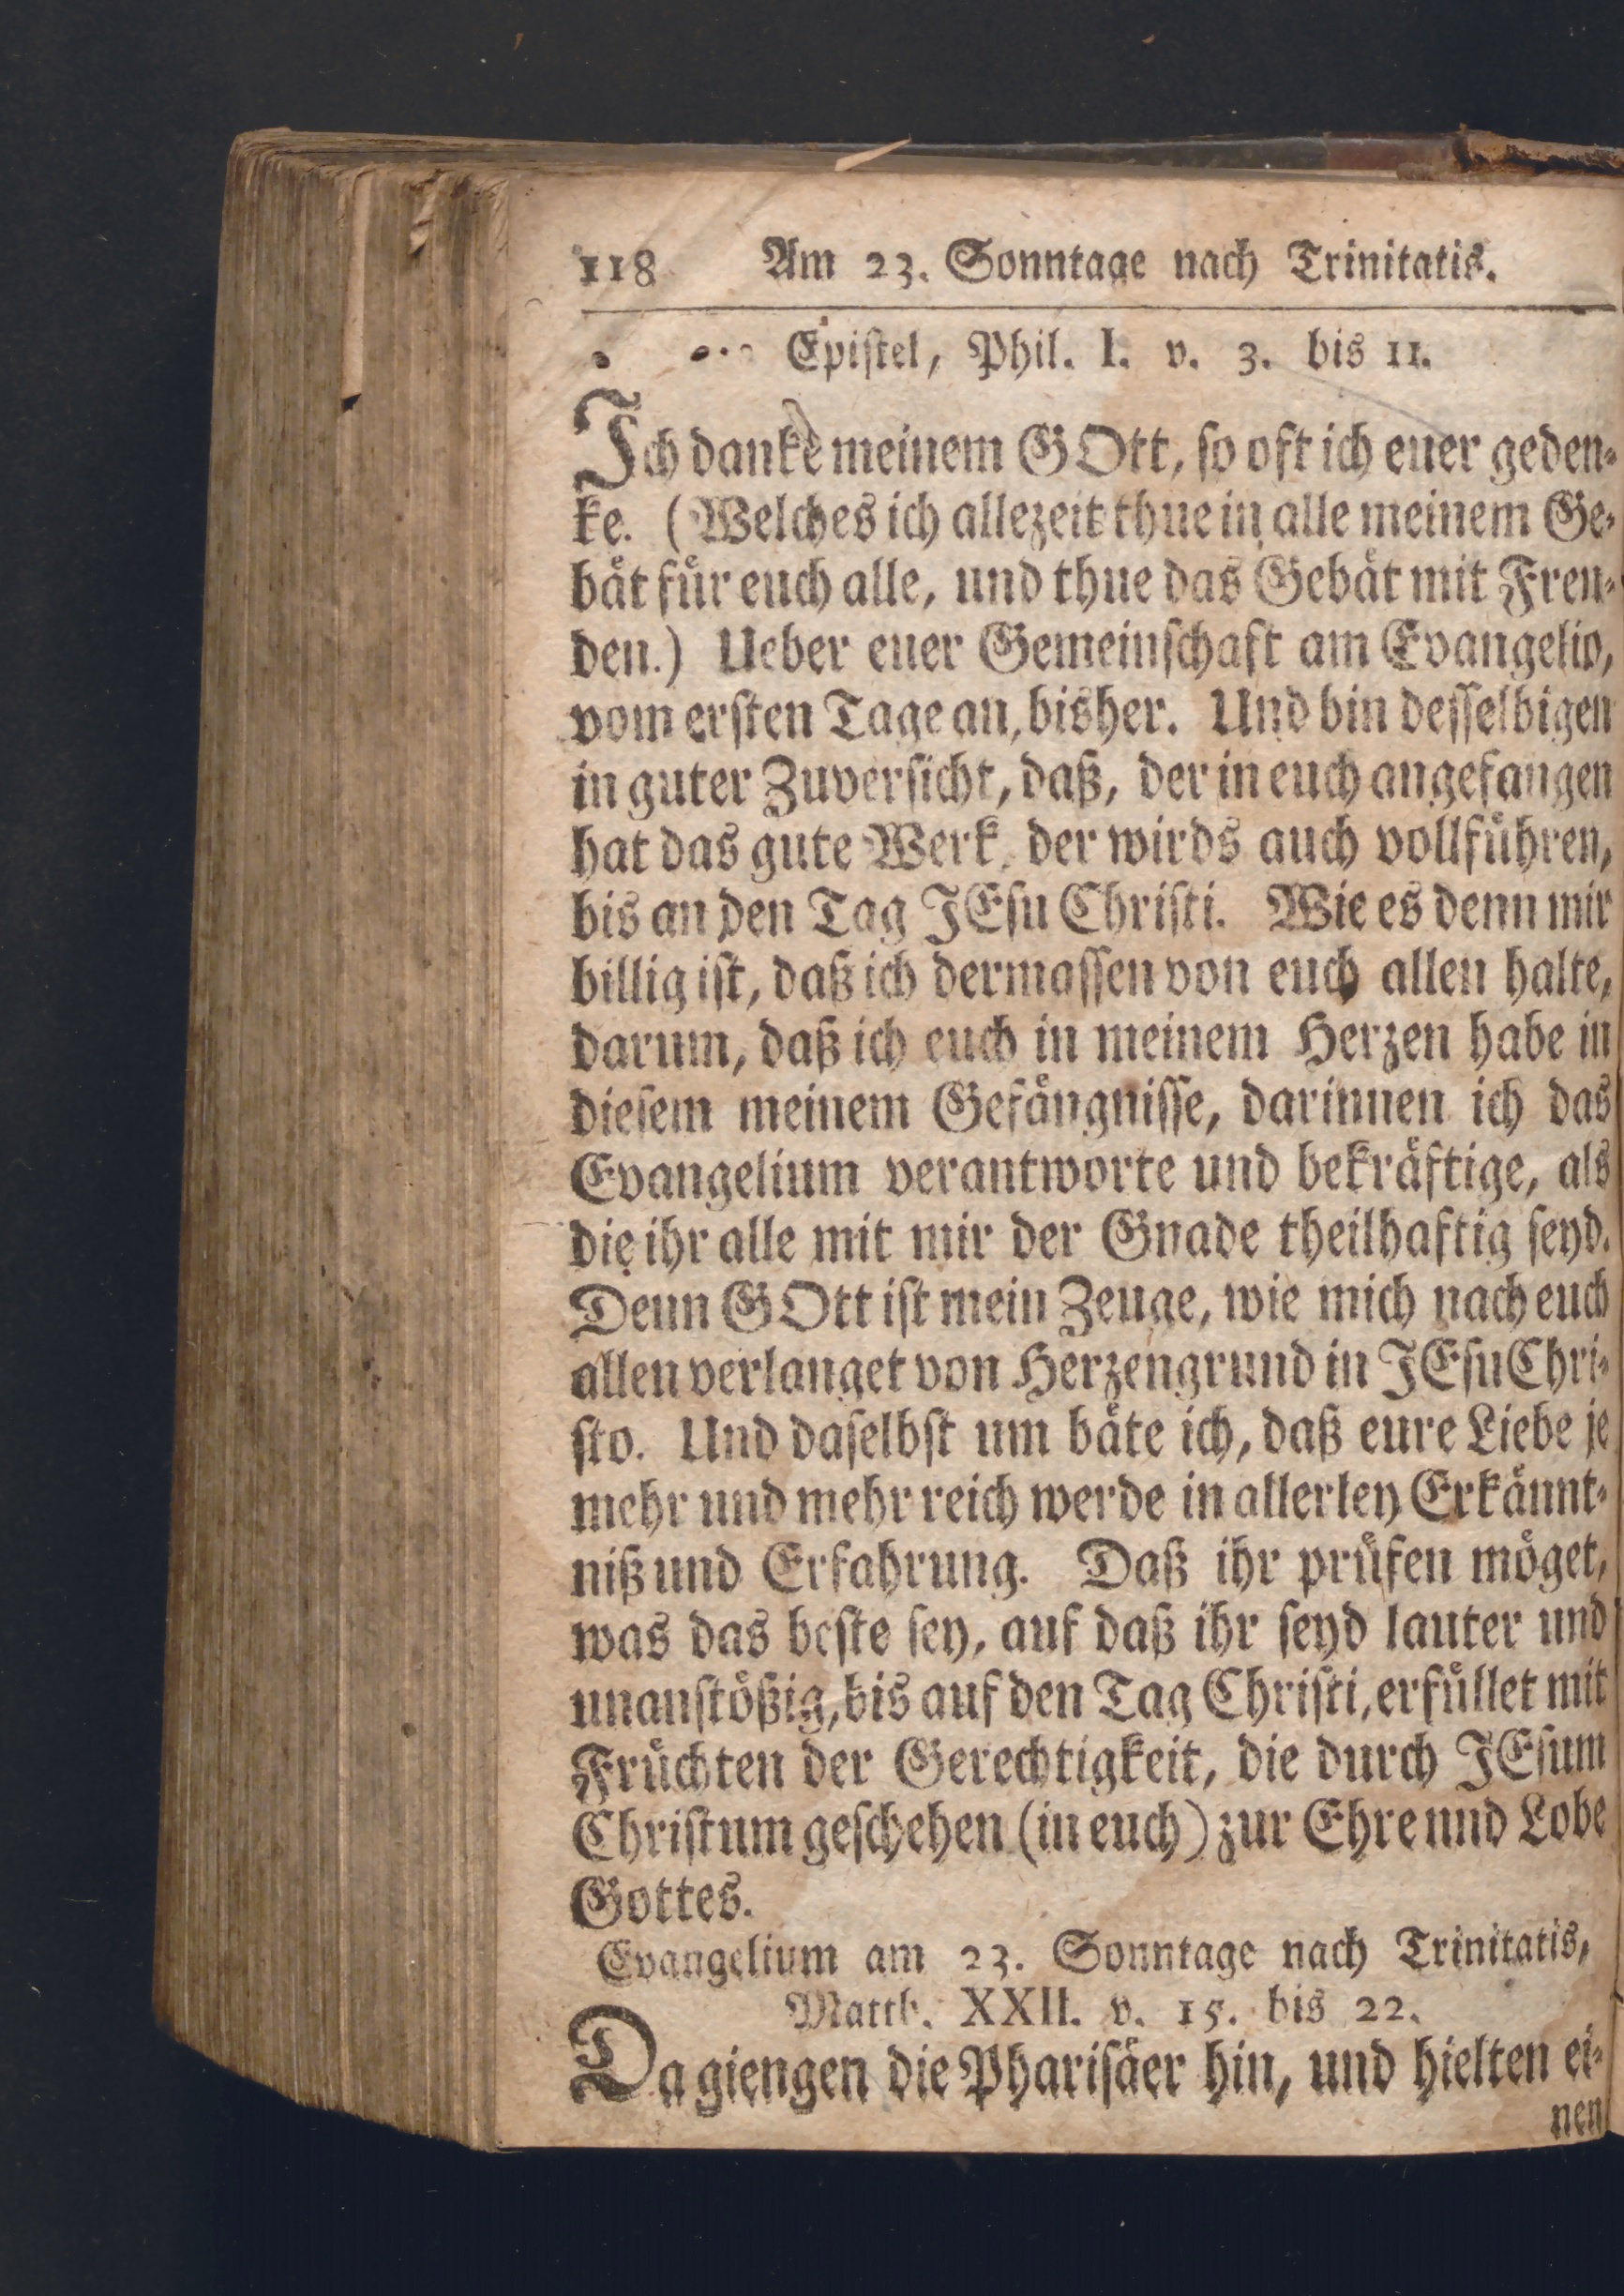 118 Am 23. Sonntage nach Trinitatis.
Epistel, Phil. I. v. 3. bis 11.
Ich danke meinem GOtt, so oft ich euer geden-
ke. (Welches ich allezeit thue in alle meinem Ge-
bät für euch alle, und thue das Gebät mit Freu-
den.) Ueber euer Gemeinschaft am Evangelio,
vom ersten Tage an, bisher. Und bin desselbigen
in guter Zuversicht, daß, der in euch angefangen
hat das gute Werk, der wirds auch vollführen,
bis an den Tag JEsu Christi. Wie es denn mir
billig ist, daß ich dermassen von euch allen halte,
darum, daß ich euch in meinem Herzen habe in
diesem meinem Gefängnisse, darinnen ich das
Evangelium verantworte und bekräftige, als
die ihr alle mit mir der Gnade theilhaftig seyd.
Denn GOtt ist mein Zeuge, wie mich nach euch
allen verlanget von Herzengrund in JEsu Chri-
sto. Und daselbst um bäte ich, daß eure Liebe je
mehr und mehr reich werde in allerley Erkännt-
niß und Erfahrung. Daß ihr prüfen möget,
was das beste sey, auf daß ihr seyd lauter und
unanstößig, bis auf den Tag Christi, erfüllet mit
Früchten der Gerechtigkeit, die durch JEsum
Christum geschehen (in euch) zur Ehre und Lobe
Gottes.
Evangelium am 23. Sonntage nach Trinitatis,
Matth. XXII. v. 15. bis 22.
Da giengen die Pharisäer hin, und hielten ei-
nen